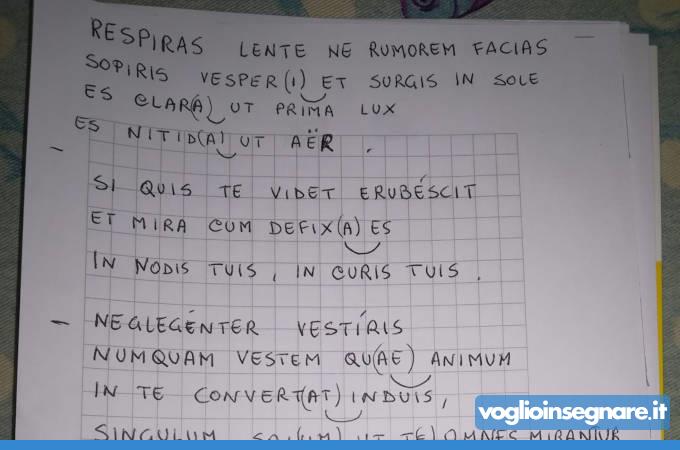 RESPIRAS LENTE NE RUMOREM FACIAS
SOPIRIS VESPER(I) ET SURGIS IN SOLE
ES CLAR(A) UT PRIMA LUX
ES NITID(A) UT AËR .
- SI QUIS TE VIDET ERUBÉSCIT
ET MIRA CUM DEFIX(A) ES
IN NODIS TUIS, IN CURIS TUIS.
- NEGLEGÉNTER VESTÍRIS
NUMQUAM VESTEM QU(AE) ANIMUM
IN TE CONVERT(AT) INDUIS,
SINGULUM UT TE) OMNES MIRANTUR
voglioinsegnare.it